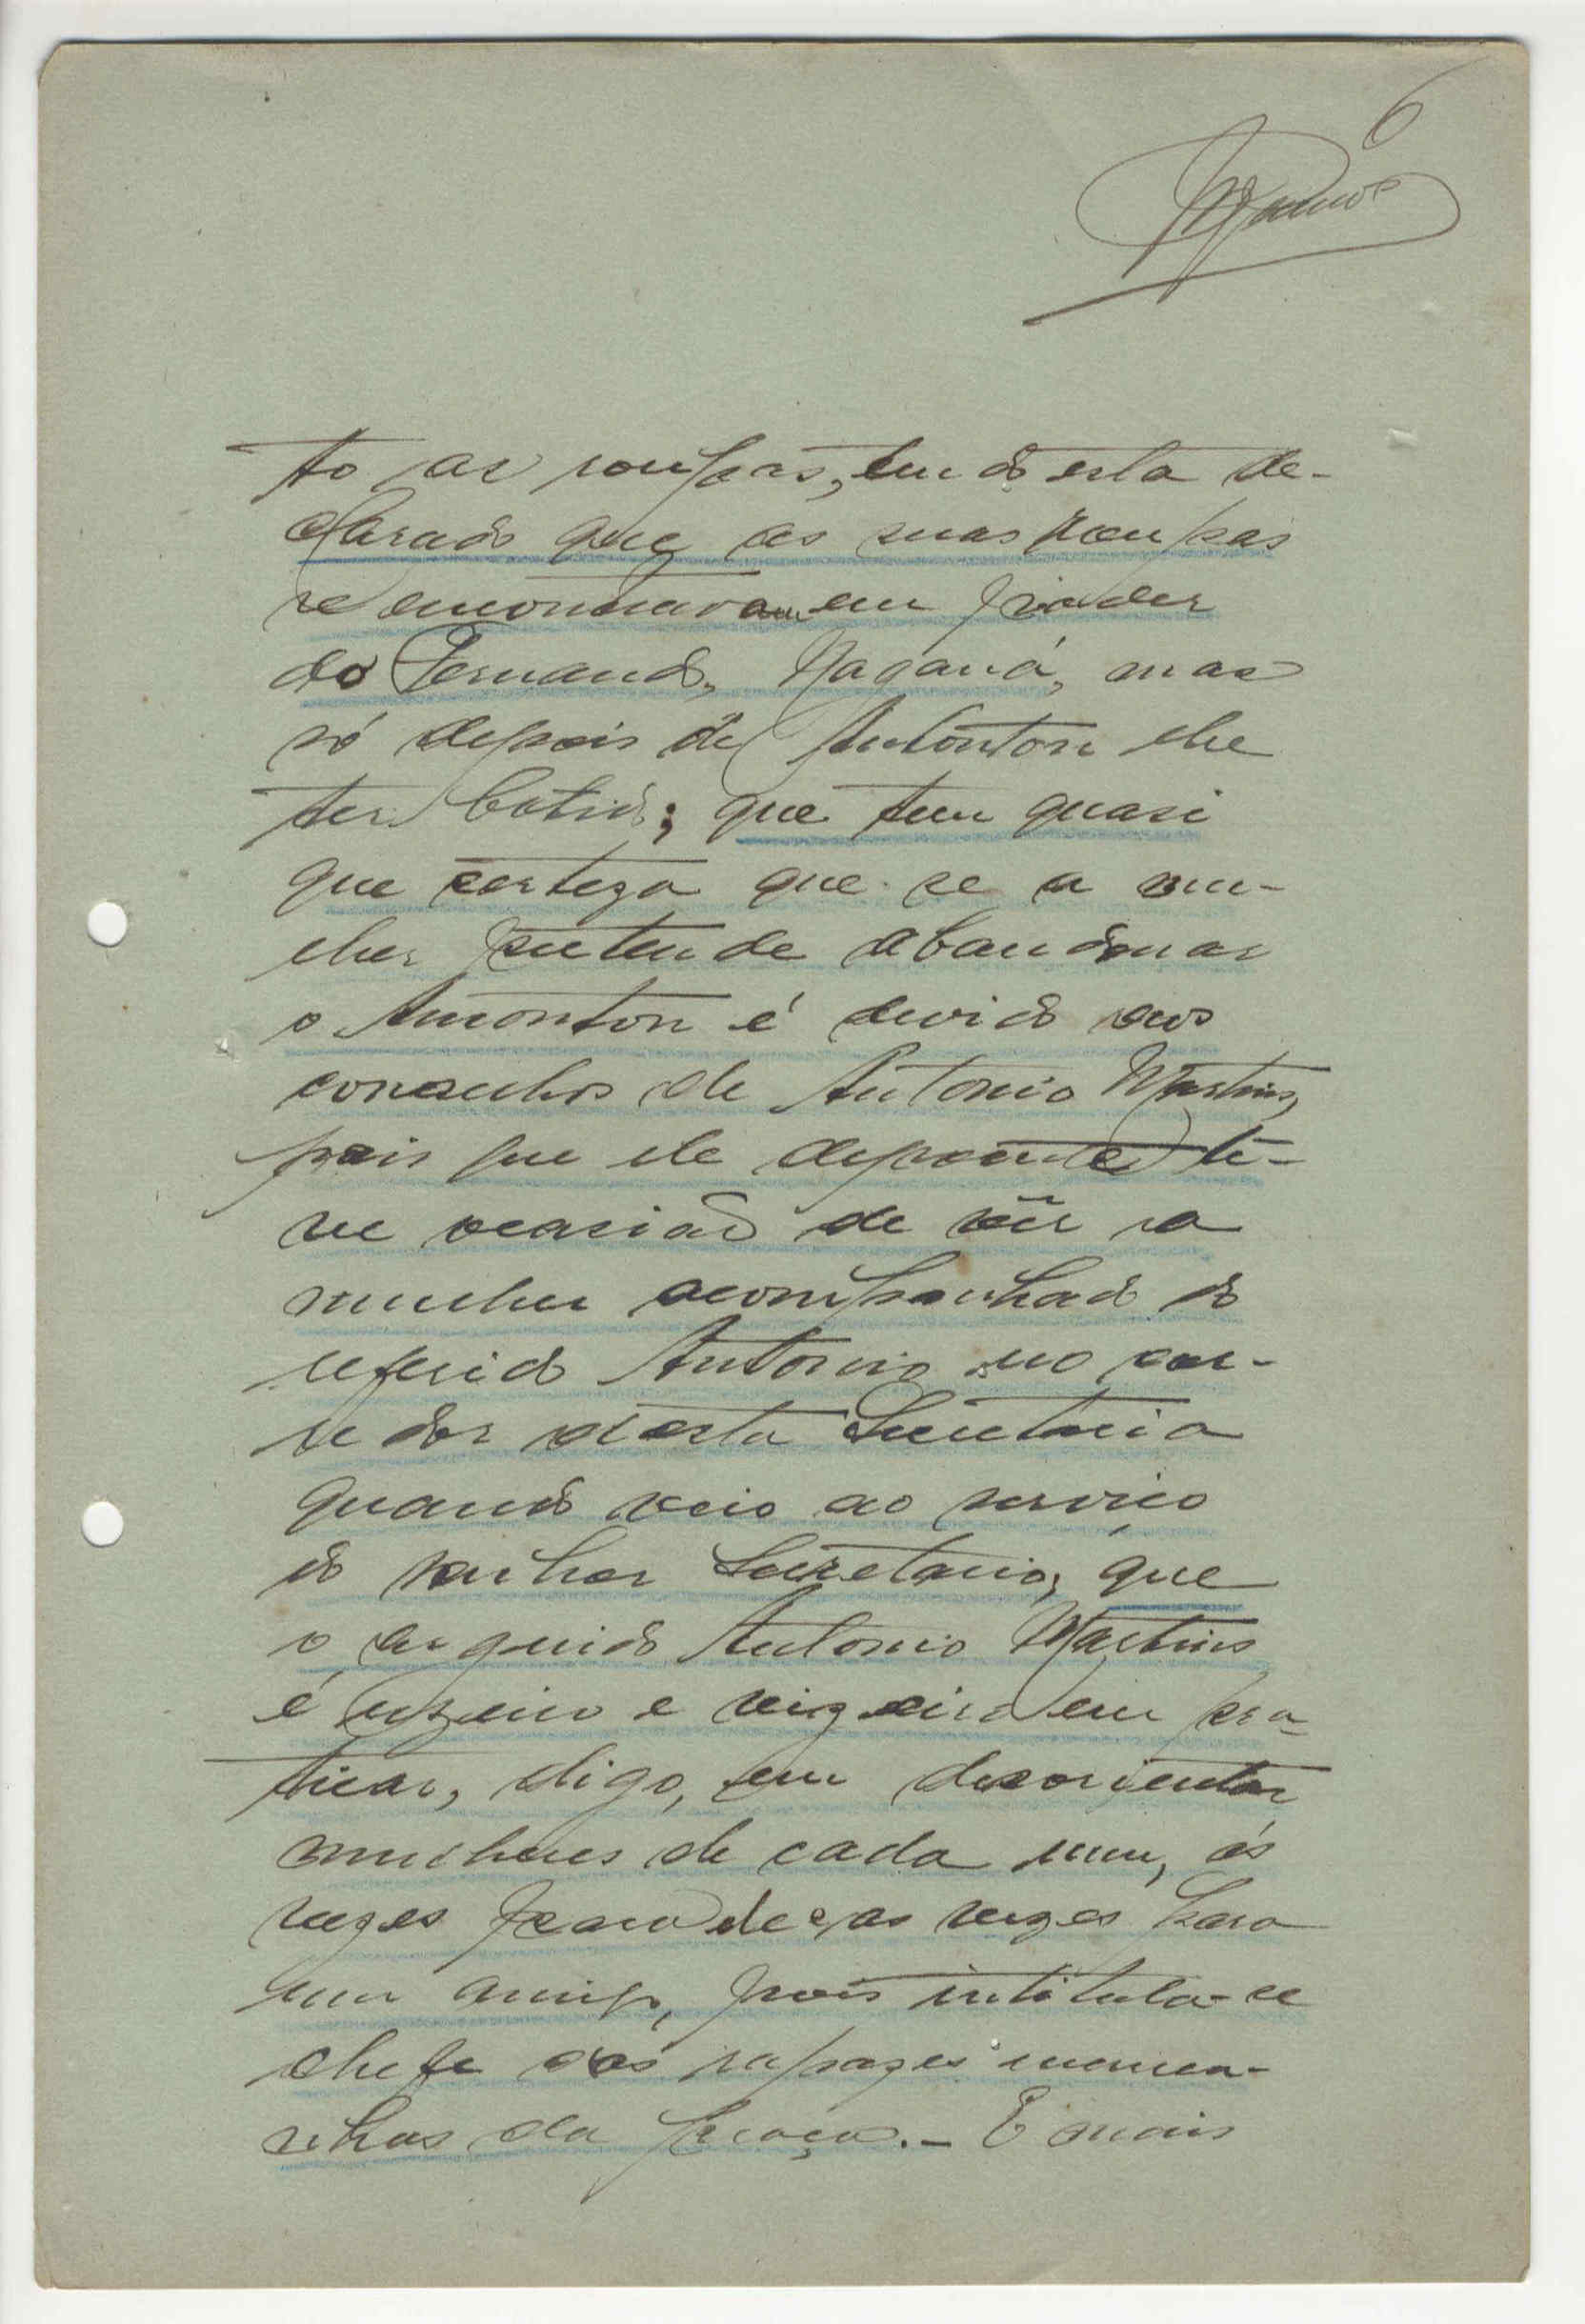 6
Ramos
to as roupas, tendo esta de-
clarado que as suas roupas
se encontravam em poder
do Fernando, Naganá, mas
só depois de Antonton lhe
ter batido; que tem quasi
que certeza que se a mu-
lher pretende abandonar
o Amonton é devido aos
conselhos de Antonio Martins,
pois que ele depoente te-
ve ocasião de vêr a
mulher acompanhado do
referido Antonio no cor-
redor desta Secretaria
quando veio ao serviço
do senhor Secretario; que
o arguido Antonio Martins
é uzeiro e vizeiro em pra-
ticar, digo, em desorientar
mulheres de cada um, ás
vezes para ele e as vezes para
um amigo, pois intitula-se
chefe dos rapazes
da praça.- E mais